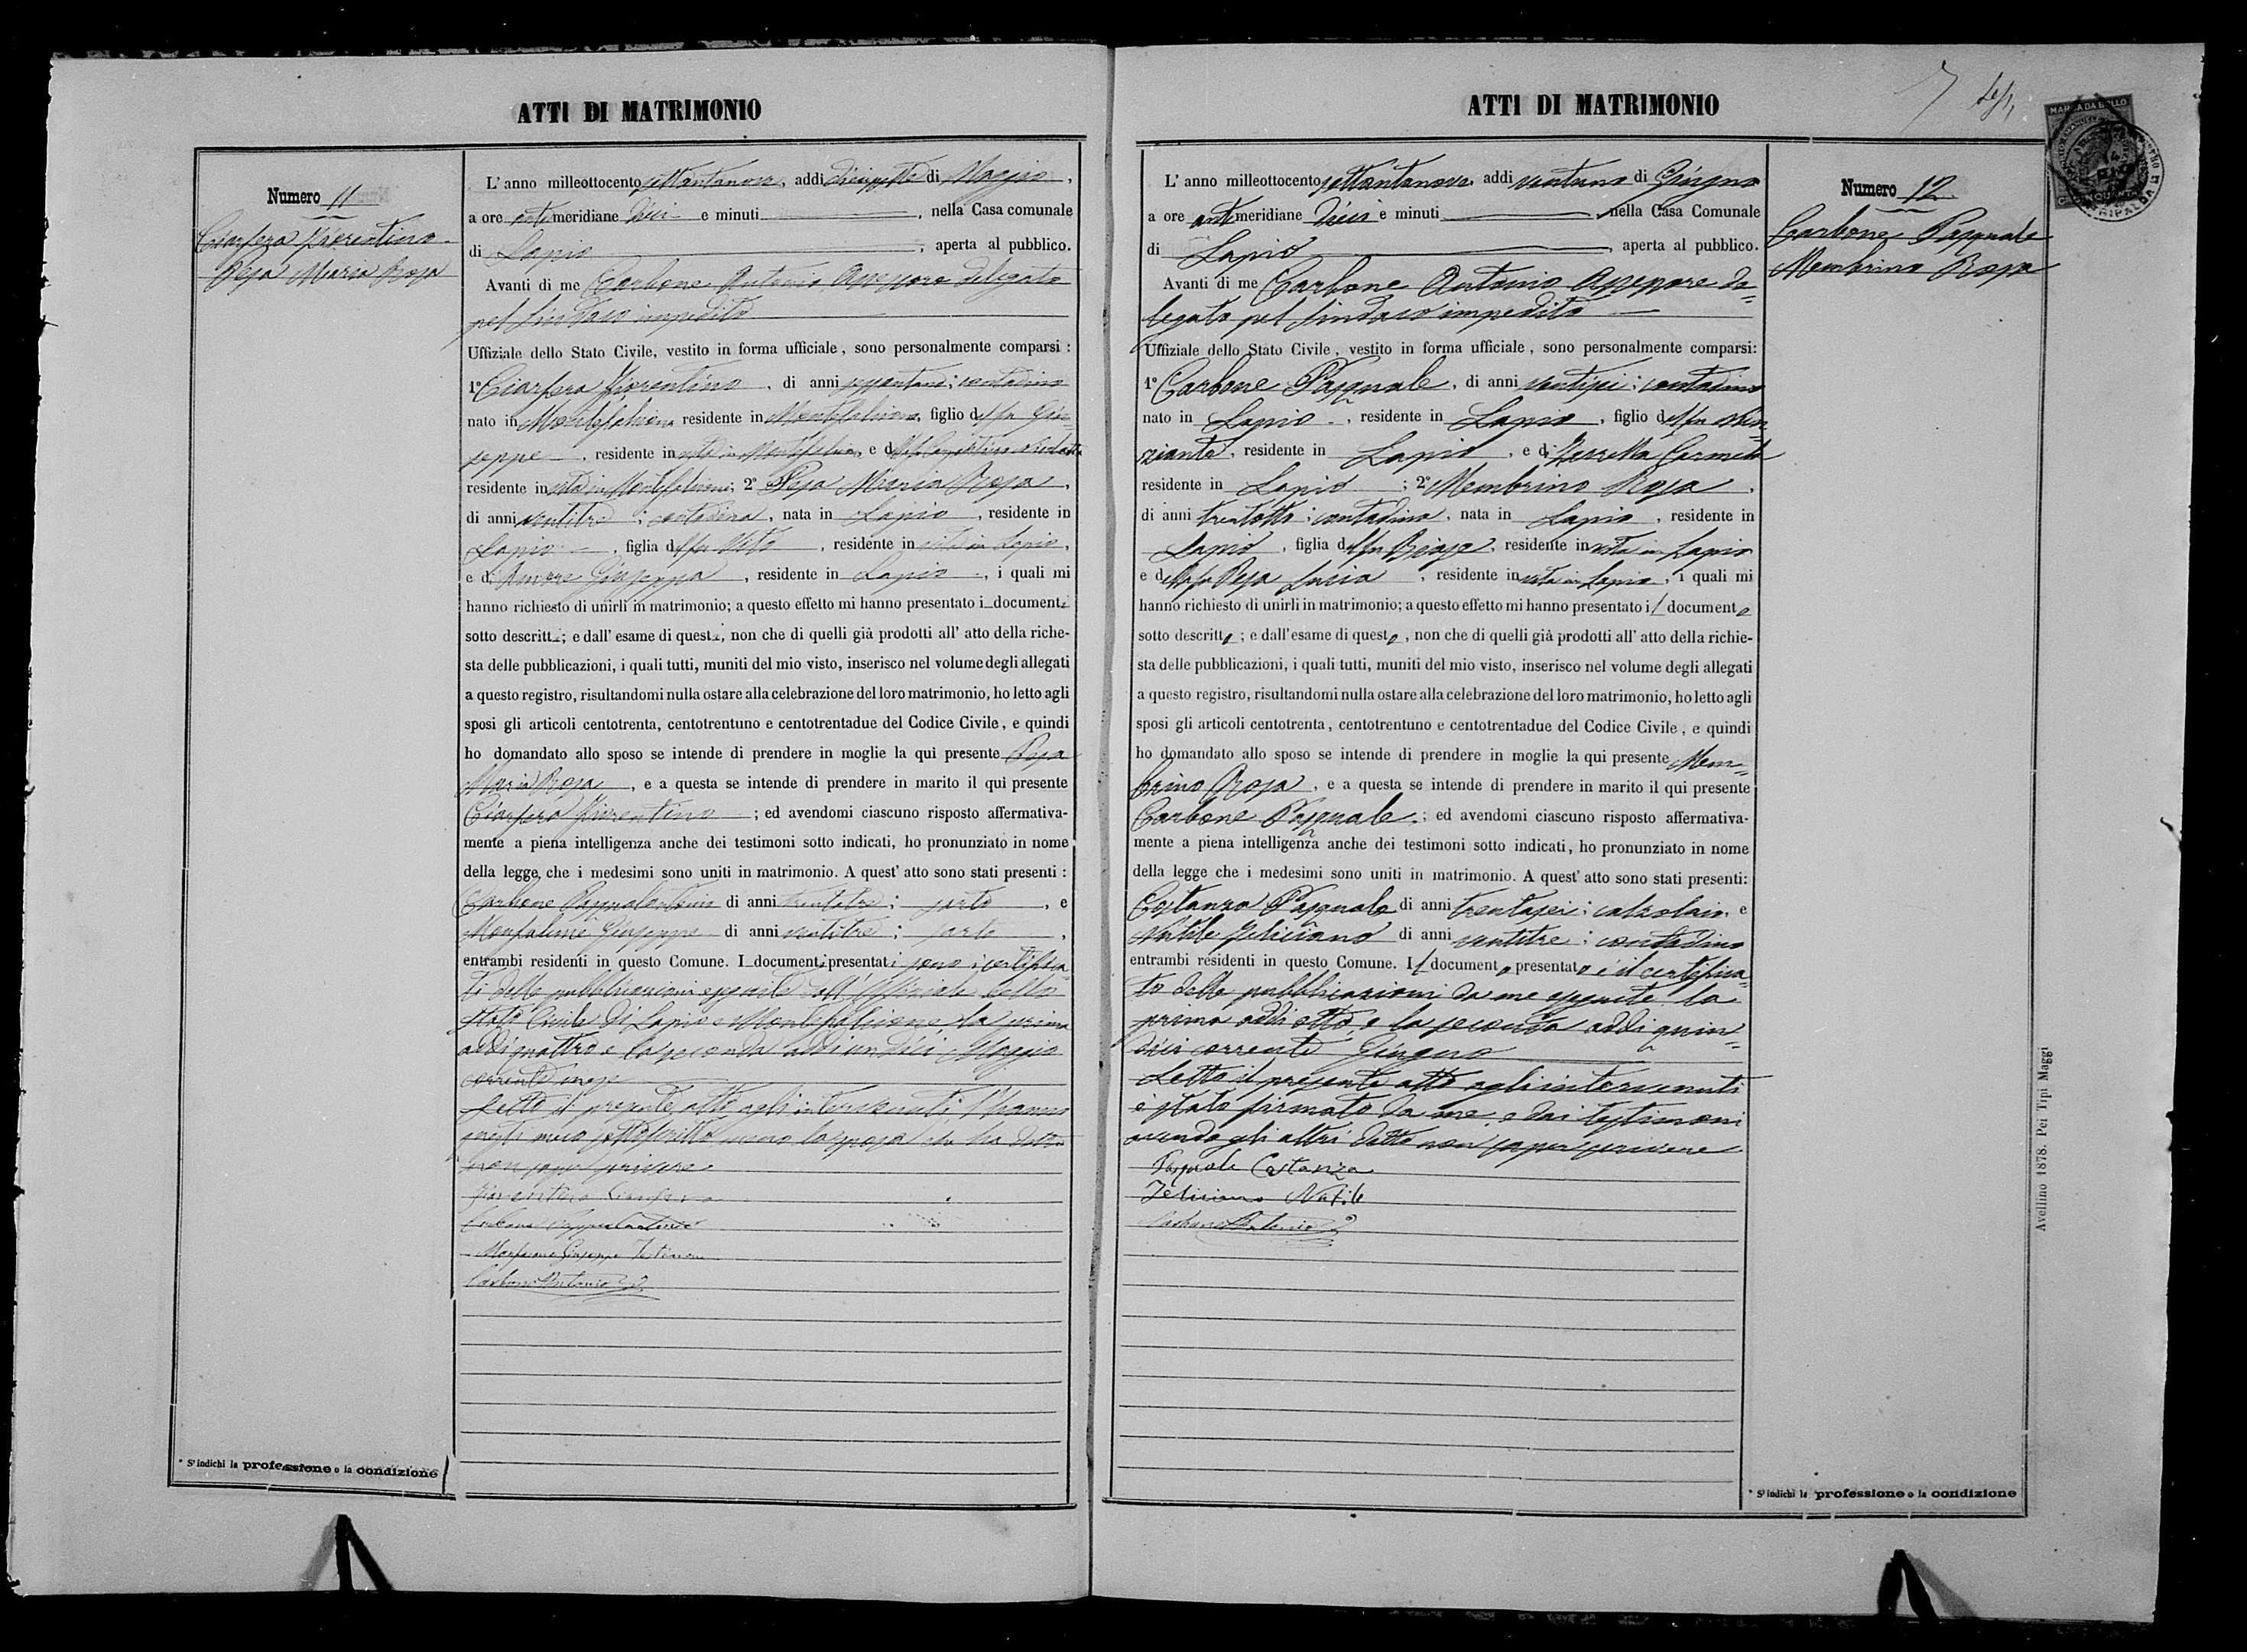 ATTI DI MATRIMONIO
Numero 11
Ciarfera Fiorentino
Pesa Maria Rosa
L' anno milleottocento settantanove, addi diciassette di Maggio,
a ore antimeridiane dieci e minuti , nella Casa comunale
di Lapio , aperta al pubblico.
Avanti di me Carbone Antonio Assessore delegato
pel Sindaco impedito
Uffiziale dello Stato Civile, vestito in forma ufficiale, sono personalmente comparsi:
1º Ciarfera Fiorentino, di anni ; contadino
nato in Montefalcione residente in Montefalcione, figlio del fu Giu=
seppe , residente in vita in Montefalcione, e della fu
residente in vita in Montefalcione; 2º Pesa Maria Rosa,
di anni ventitre; contadina, nata in Lapio, residente in
Lapio , figlia del fu Vito , residente in vita in Lapio,
e di Amore Giuseppa , residente in Lapio , i quali mi
hanno richiesto di unirli in matrimonio; a questo effetto mi hanno presentato i documenti
sotto descritti; e dall' esame di questi, non che di quelli già prodotti all' atto della riche-
sta delle pubblicazioni, i quali tutti, muniti del mio visto, inserisco nel volume degli allegati
a questo registro, risultandomi nulla ostare alla celebrazione del loro matrimonio, ho letto agli
sposi gli articoli centotrenta, centotrentuno e centotrentadue del Codice Civile, e quindi
ho domandato allo sposo se intende di prendere in moglie la qui presente Pesa
Maria Rosa , e a questa se intende di prendere in marito il qui presente
Ciarfera Fiorentino ; ed avendomi ciascuno risposto affermativa-
mente a piena intelligenza anche dei testimoni sotto indicati, ho pronunziato in nome
della legge, che i medesimi sono uniti in matrimonio. A quest' atto sono stati presenti:
Carbone Pasqualantonio di anni trentatre; sarto , e
Giuseppe di anni ventitre; sarto ,
entrambi residenti in questo Comune. I documenti presentati sono i certifica=
ti delle pubblicazioni eseguite dall' Uffiziale dello
Stato Civile di Lapio e Montefalcione, la prima
addi quattro e la seconda addi undici Maggio
corrente mese
Letto il presente atto agli intervenuti, l'hanno
questi meco sottoscritto meno la sposa che ha detto
non saper scrivere.
Fiorentino
Carbone Pasqualantonio
Giuseppe Testimone
Carbone Antonio
* S' indichi la professione o la condizione
ATTI DI MATRIMONIO
7
MARCA DA BOLLO
Numero 12
Carbone Pasquale
Membrino Rosa
L' anno milleottocento settantanove, addi ventuno di Giugno
a ore antimeridiane dieci e minuti , nella Casa Comunale
di Lapio , aperta al pubblico.
Avanti di me Carbone Antonio Assessore de=
legato pel Sindaco impedito
Uffiziale dello Stato Civile, vestito in forma ufficiale, sono personalmente comparsi:
1º Carbone Pasquale, di anni ventisei; contadino
nato in Lapio , residente in Lapio , figlio del fu Nun=
ziante, residente in Lapio , e di Carmela
residente in Lapio ; 2º Membrino Rosa ,
di anni trentotto; contadina, nata in Lapio , residente in
Lapio , figlia del fu Biage, residente in vita in Lapio
e della fu Pesa Lucia , residente in vita in Lapio, i quali mi
hanno richiesto di unirli in matrimonio; a questo effetto mi hanno presentato il documento
sotto descritto; e dall' esame di questo, non che di quelli già prodotti all' atto della richie-
sta delle pubblicazioni, i quali tutti, muniti del mio visto, inserisco nel volume degli allegati
a questo registro, risultandomi nulla ostare alla celebrazione del loro matrimonio, ho letto agli
sposi gli articoli centotrenta, centotrentuno e centotrentadue del Codice Civile, e quindi
ho domandato allo sposo se intende di prendere in moglie la qui presente Mem=
brino Rosa , e a questa se intende di prendere in marito il qui presente
Carbone Pasquale ; ed avendomi ciascuno risposto affermativa-
mente a piena intelligenza anche dei testimoni sotto indicati, ho pronunziato in nome
della legge che i medesimi sono uniti in matrimonio. A quest' atto sono stati presenti:
Costanza Pasquale di anni trentasei; calzolaio, e
Natile Feliciano di anni ventitre; contadino
entrambi residenti in questo Comune. Il documento presentato è il certifica=
to delle pubblicazioni da me eseguite la
prima addi otto, e la seconda addi quin=
dici corrente Giugno
Letto il presente atto agli intervenuti
è stato firmato da me, e dai testimoni
avendo gli altri detto non saper scrivere
Pasquale Costanza
Feliciano Natile
Carbone Antonio
* S' indichi la professione o la condizione
Avellino 1878. Pei Tipi Maggi